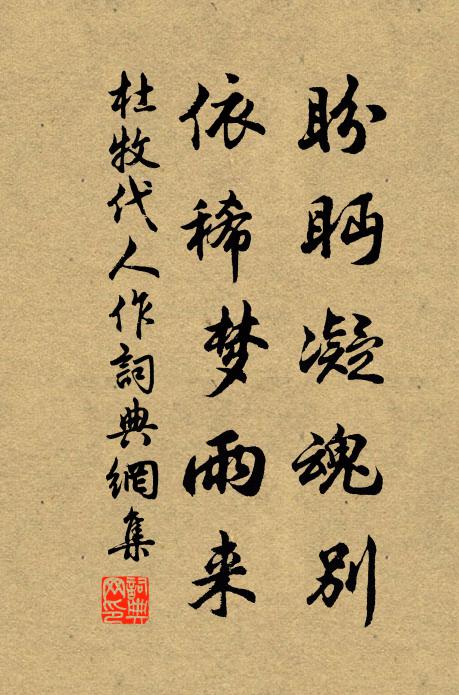 盼眄凝魂别
依稀梦雨来
杜牧代人作詞典網集
詞典網印